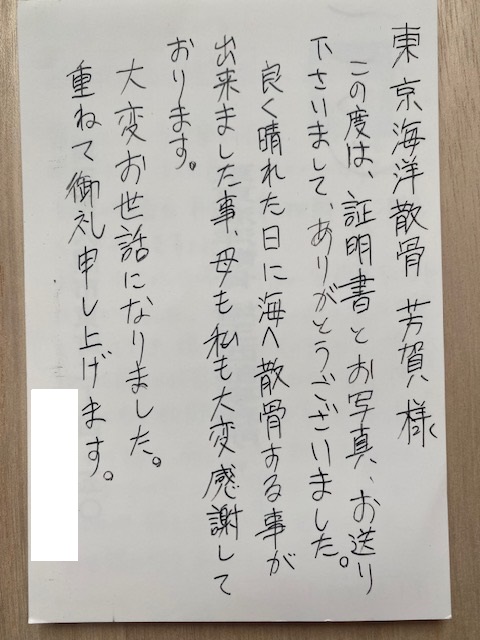 東京海洋散骨 芳賀様
この度は、証明書とお写真、お送り
下さいまして、ありがとうございました。
良く晴れた日に海へ散骨する事が
出来ました事、母も私も大変感謝して
おります。
大変お世話になりました。
重ねて御礼申し上げます。